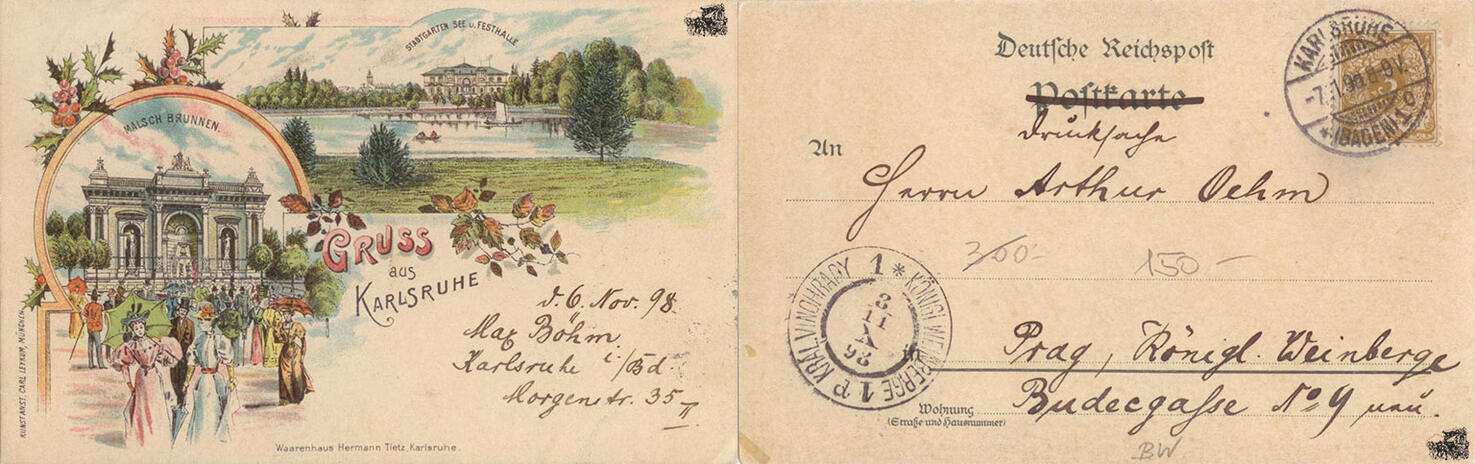 STADTGARTEN SEE U. FESTHALLE.
MALSCH BRUNNEN.
GRUSS
aus
KARLSRUHE
d. 6. Nov. 98.
Max Böhm
Karlsruhe i/Bd.
Morgenstr. 35 II
KUNSTANST. CARL LEYKUM, MÜNCHEN.
Waarenhaus Hermann Tietz, Karlsruhe.
Deutsche Reichspost
Postkarte
Drucksache
KARLSRUHE
(BADEN) 1
An
Herrn Arthur Oehm
300-
150-
KRÁL. VINOHRADY 1 * KÖNIGL. WEINBERGE 1
in Prag, Königl. Weinberge
Wohnung
(Straße und Hausnummer)
Budecgasse No 9 neu.
BW